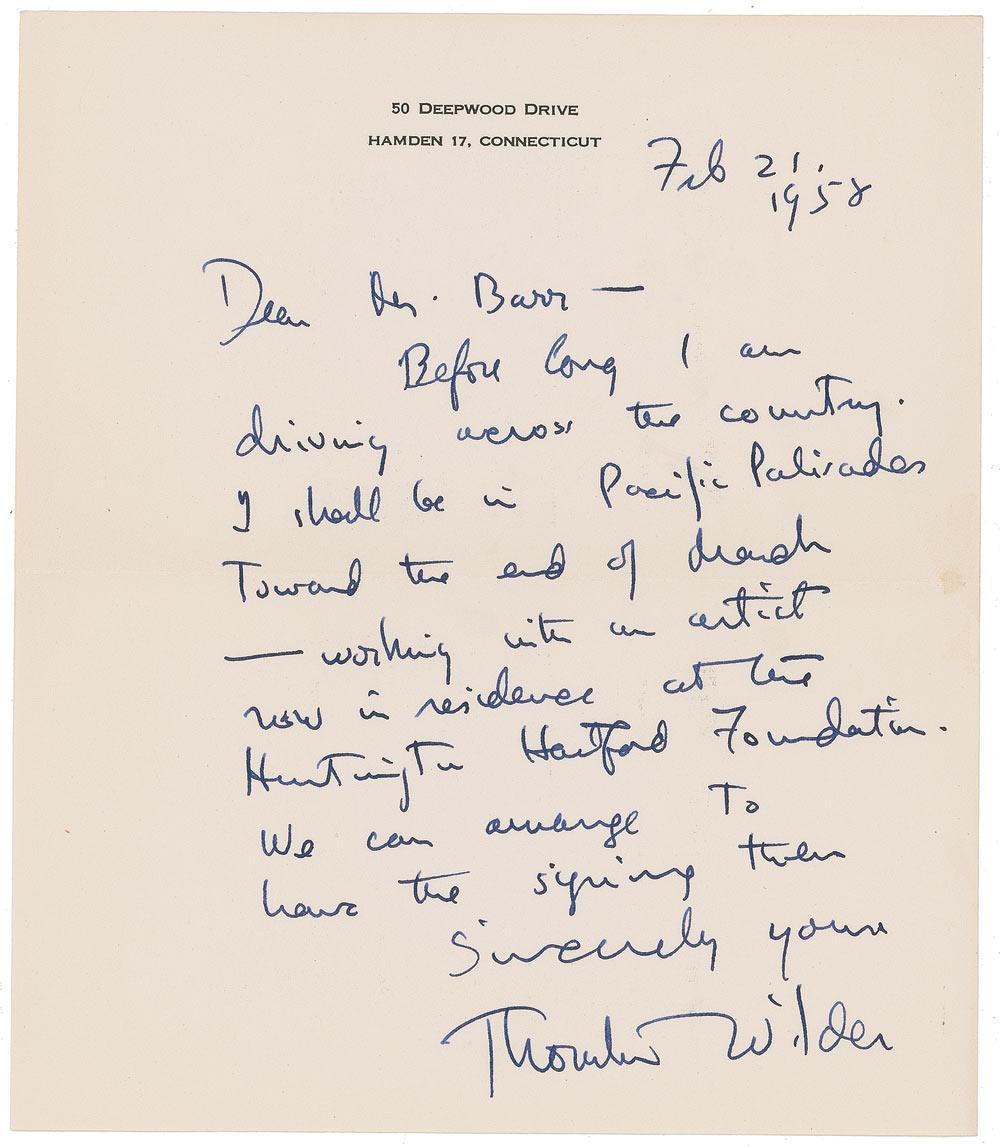 50 DEEPWOOD DRIVE
HAMDEN 17, CONNECTICUT
Feb 21.
1958
Dear Mr. Barr —
Before long I am
driving across the country.
I shall be in Pacific Palisades
Toward the end of March
— working with an artist
now in residence at the
Huntington Hartford Foundation.
We can arrange To
have the signing then
Sincerely yours
Thornton Wilder